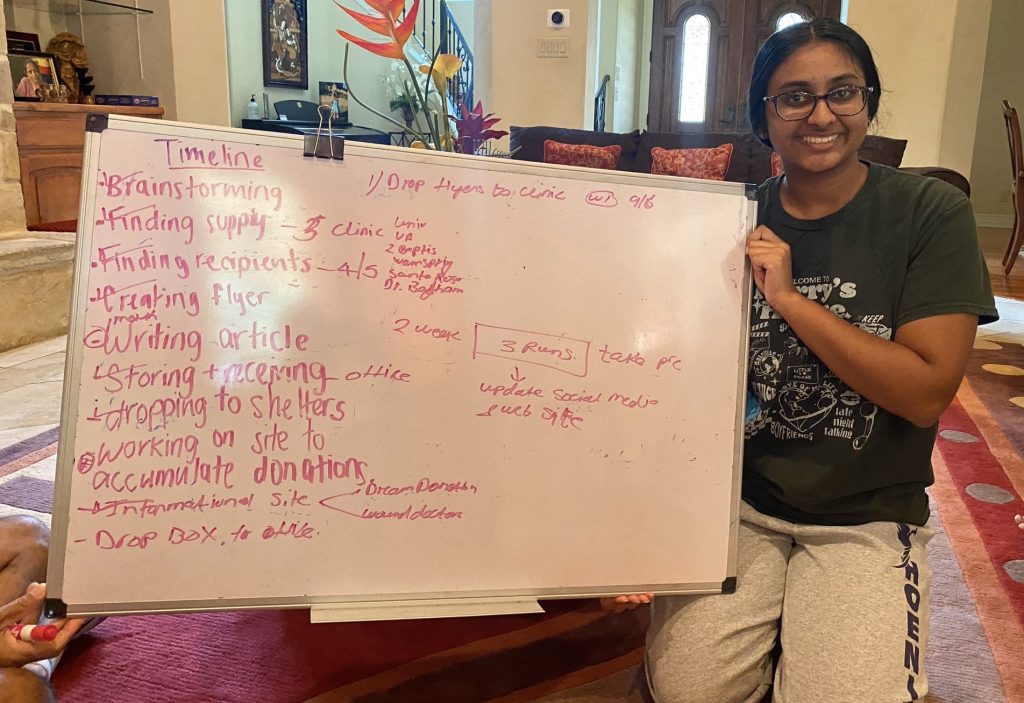 Timeline
- Brainstorming
- Finding supply - 5 clinic
Univ
VA
2
- Finding recipients - 4/5
Santa Rosa
Dr.
- Creating flyer
Writing article
Storing + receiving - office
- dropping to shelters
working on site to
accumulate donations
- Informational site
Dream Donation
wound doctors
- Drop BOX to office.
1) Drop flyers to clinic 9/6
2 week
3 Runs. take pic
update social media
& web site
WELCOME TO
KEEP
LOVE
BOYFRIENDS
late
night
talking
HOENI